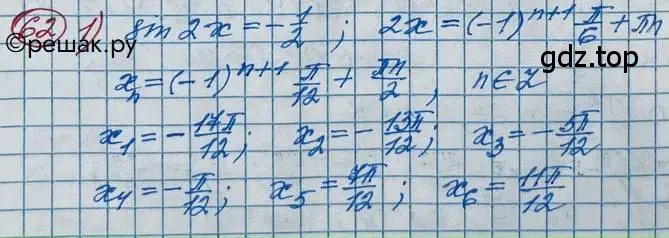 62 1) sin 2x = -1/2 ; 2x = (-1)^{n+1} π/6 + πn
©решак.ру
gdz.top
x_n = (-1)^{n+1} π/12 + πn/2 , n ∈ Z
x_1 = -17π/12 ; x_2 = -13π/12 ; x_3 = -5π/12
x_4 = -π/12 ; x_5 = 7π/12 ; x_6 = 11π/12